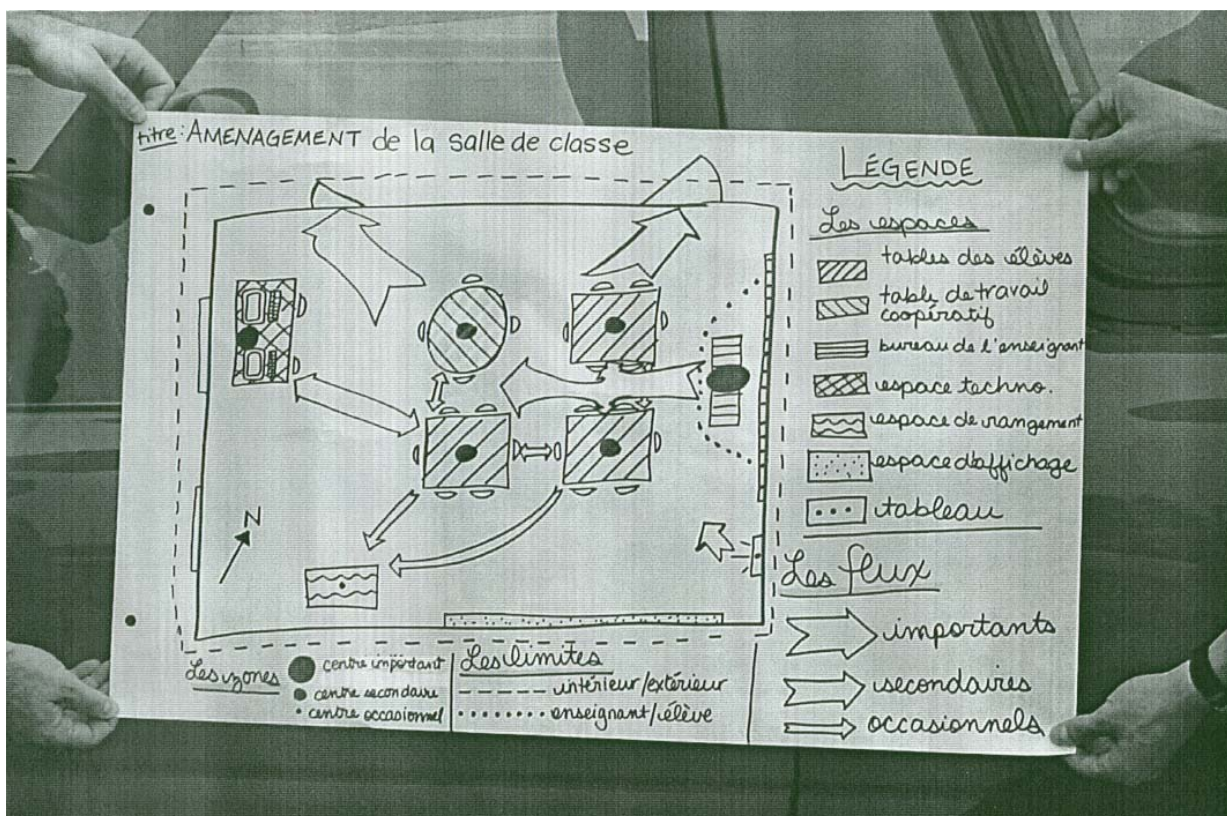 titre: AMENAGEMENT de la salle de classe
N
LÉGENDE
Les espaces
tables des élèves
table de travail
coopératif
bureau de l'enseignant
espace techno.
espace de rangement
espace d'affichage
tableau
Les flux
importants
secondaires
occasionnels
Les zones
centre important
centre secondaire
centre occasionnel
Les limites
intérieur/extérieur
enseignant/élève